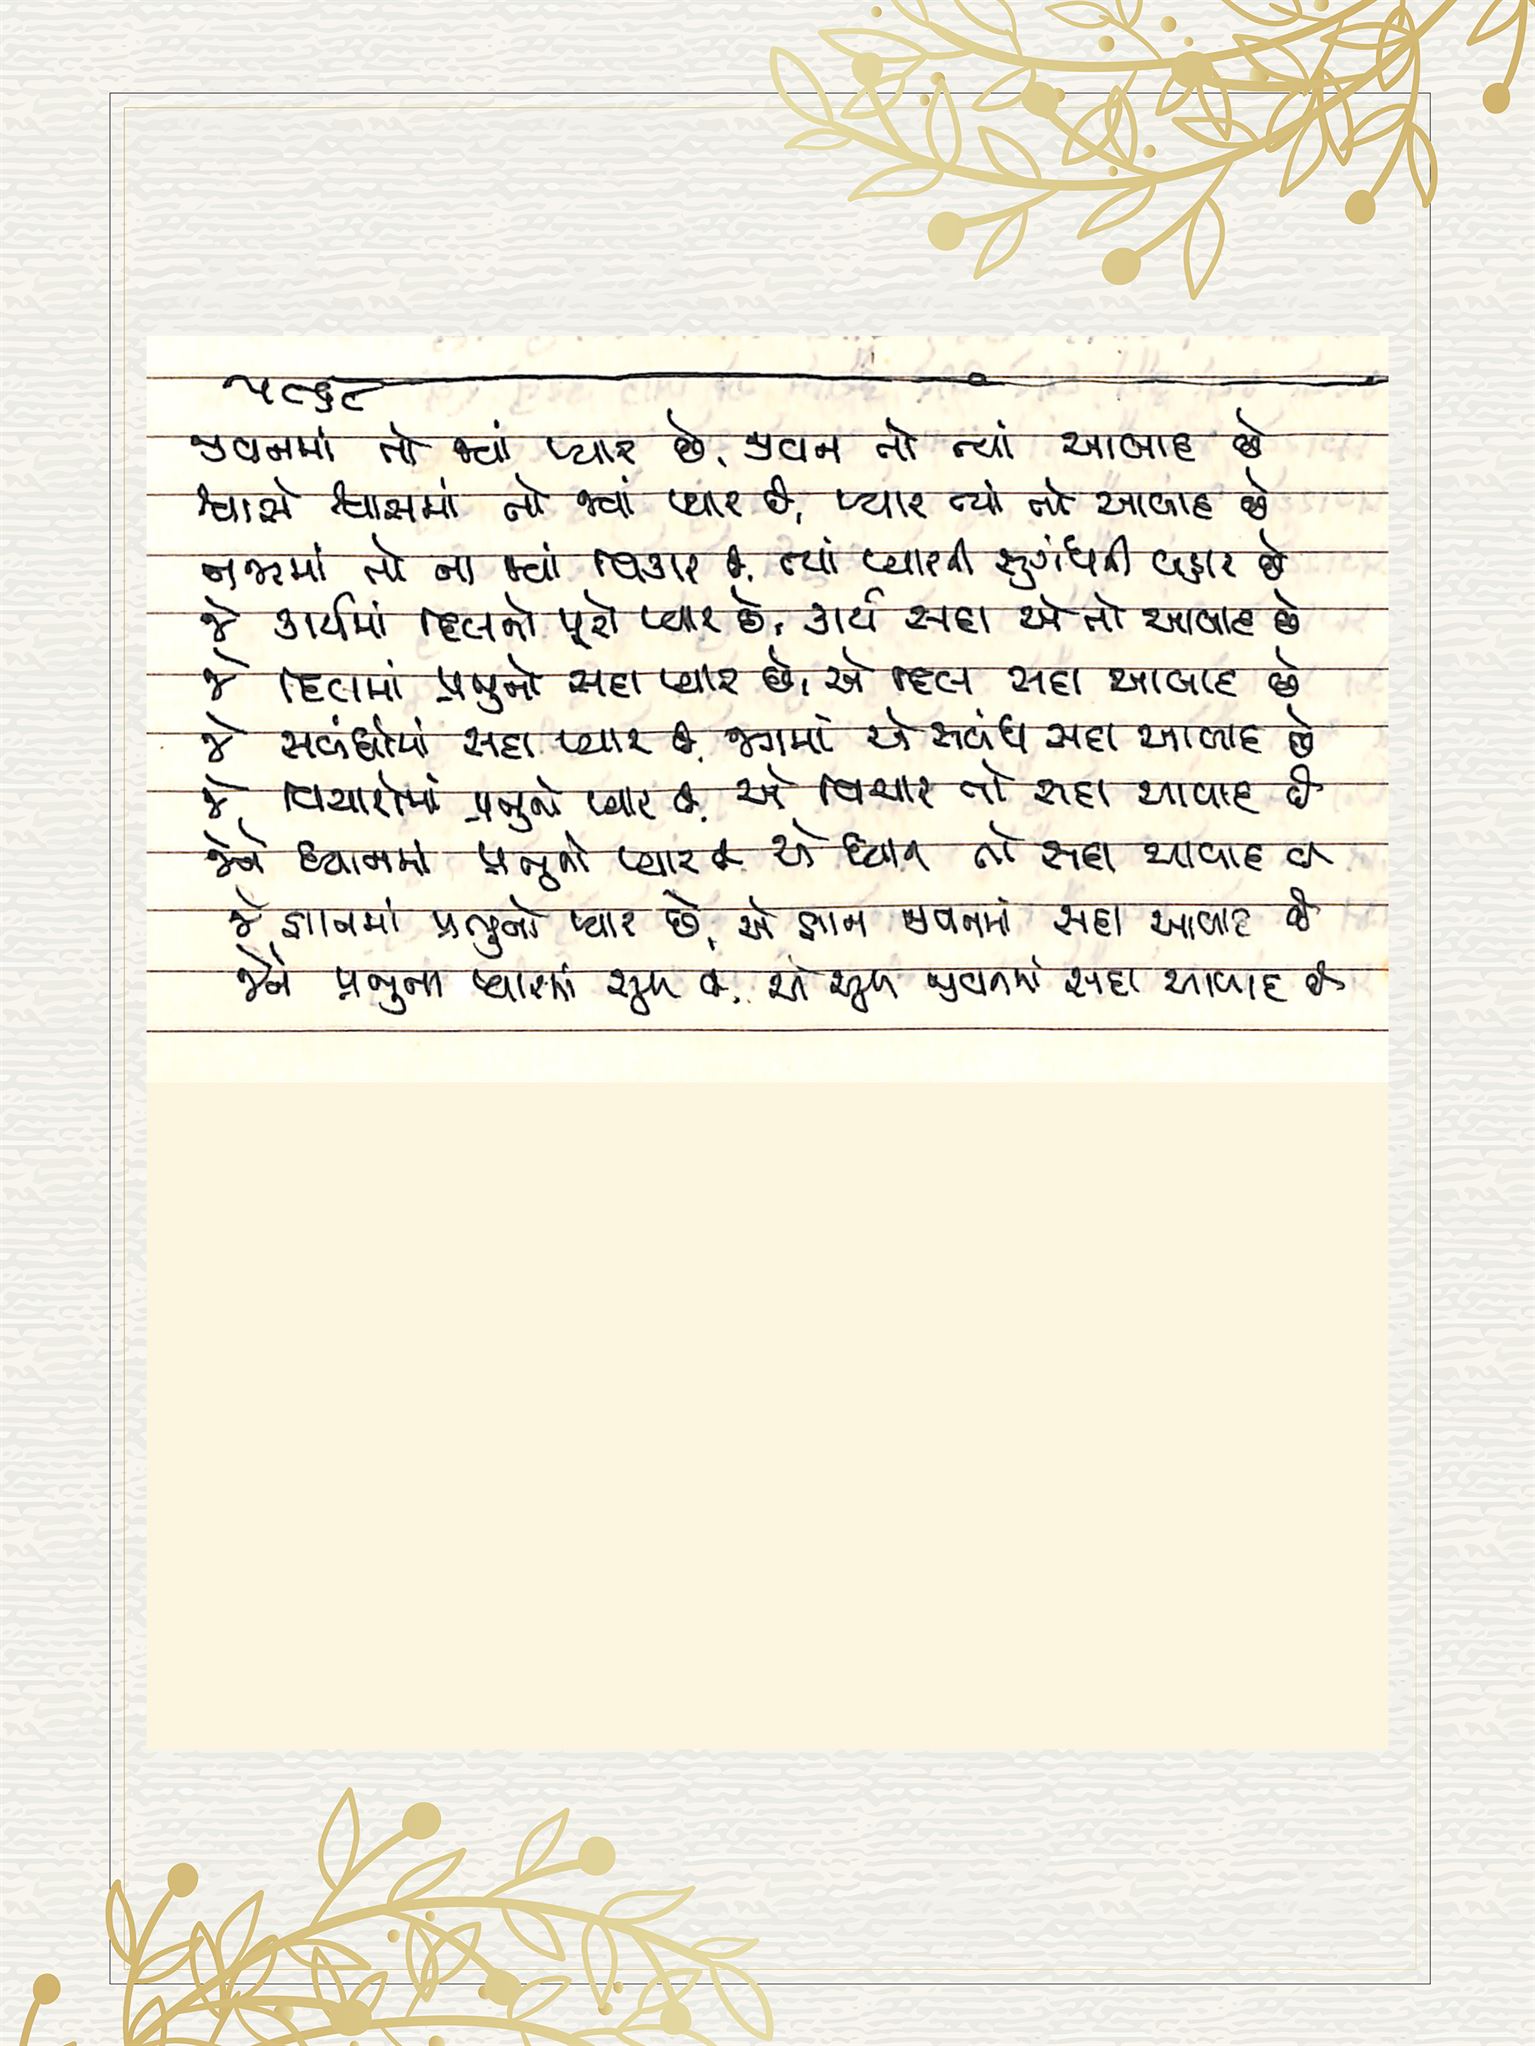 ૫૮૬૮
જીવનમાં તો જ્યાં પ્યાર છે, જીવન તો ત્યાં આબાદ છે
શ્વાસે શ્વાસમાં તો જ્યાં પ્યાર છે, પ્યાર ત્યાં તો આબાદ છે
નજરમાં તો ના જ્યાં વિકાર છે, ત્યાં પ્યારની સુગંધની બહાર છે
જે કાર્યમાં દિલનો પૂરો પ્યાર છે, કાર્ય સદા એ તો આબાદ છે
જે દિલમાં પ્રભુનો સદા પ્યાર છે, એ દિલ સદા આબાદ છે
જે સબંધોમાં સદા પ્યાર છે, જગમાં એ સબંધ સદા આબાદ છે
જે વિચારોમાં પ્રભુનો પ્યાર છે, એ વિચાર તો સદા આબાદ છે
જેને ધ્યાનમાં પ્રભુનો પ્યાર છે એ ધ્યાન તો સદા આબાદ છે
જે જ્ઞાનમાં પ્રભુનો પ્યાર છે, એ જ્ઞાન જીવનમાં સદા આબાદ છે
જેને પ્રભુના પ્યારમાં સુખ છે, એ સુખ જીવનમાં સદા આબાદ છે